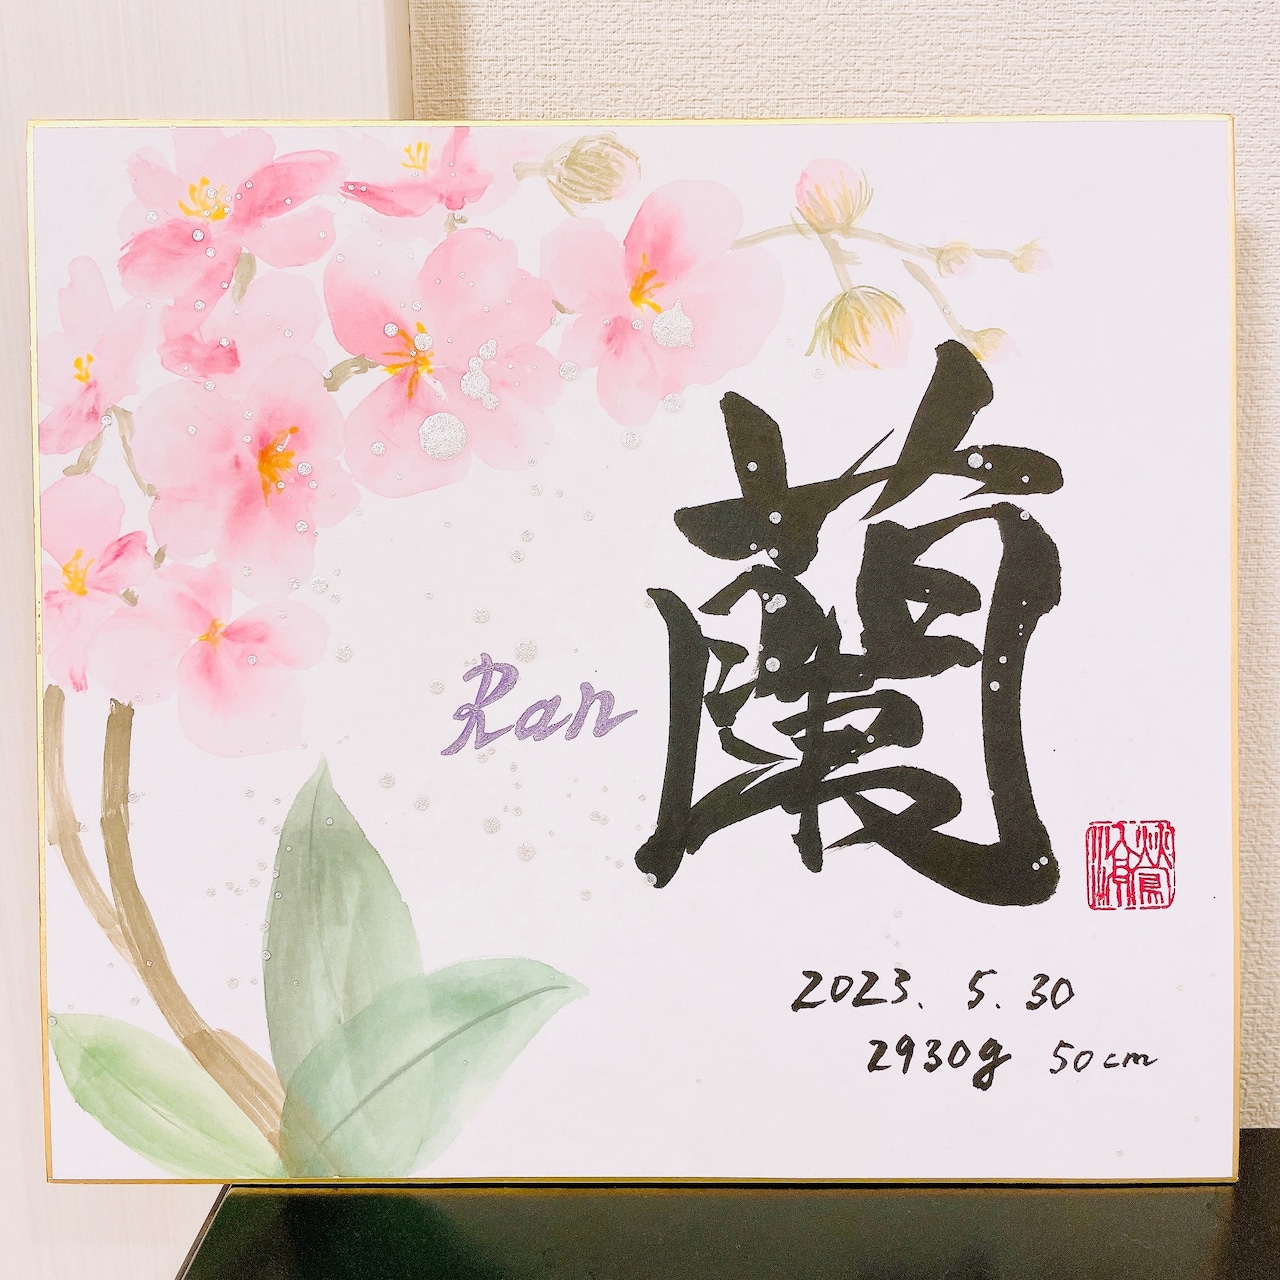 蘭
Ran
2023. 5. 30
2930g 50cm